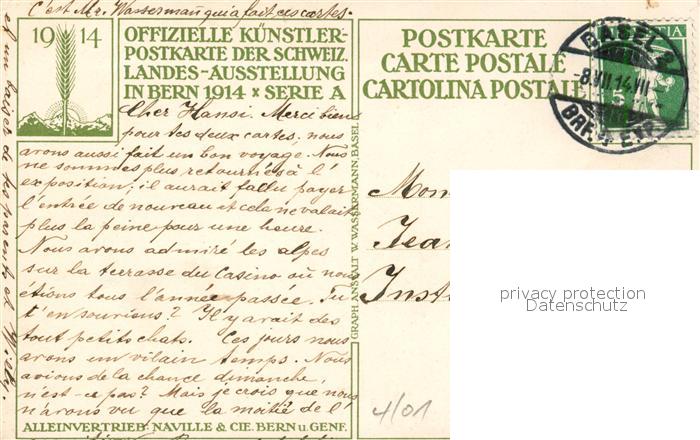 C'est Mr. Wasserman qui a fait ces cartes.
1914
OFFIZIELLE KÜNSTLER-
POSTKARTE DER SCHWEIZ.
LANDES-AUSSTELLUNG
IN BERN 1914 × SERIE A
Cher Hansi. Merci bien
pour tes deux cartes. nous
avons aussi fait un bon voyage. Nous
ne sommes plus retournés à l'
exposition; il aurait fallu payer
l'entrée de nouveau et cela ne valait
plus la peine pour une heure.
Nous avons admiré les alpes
sur la terrasse du Casino où nous
étions tous l'année passée. Tu
t'en souviens? Il y avait des
tout petits chats. Ces jours nous
avons un vilain temps. Nous
avions de la chance dimanche,
n'est-ce pas? Mais je crois que nous
n'avons vu que la moitié de l'
ALLEINVERTRIEB: NAVILLE & CIE. BERN U. GENF.
et un baiser de tes parents et
GRAPH. ANSTALT W. WASSERMANN, BASEL
POSTKARTE
CARTE POSTALE
CARTOLINA POSTALE
BASEL 2
-8.VII.14.VII-
BRF.
5
Mon
Jean
Inst
privacy protection
Datenschutz
4/01